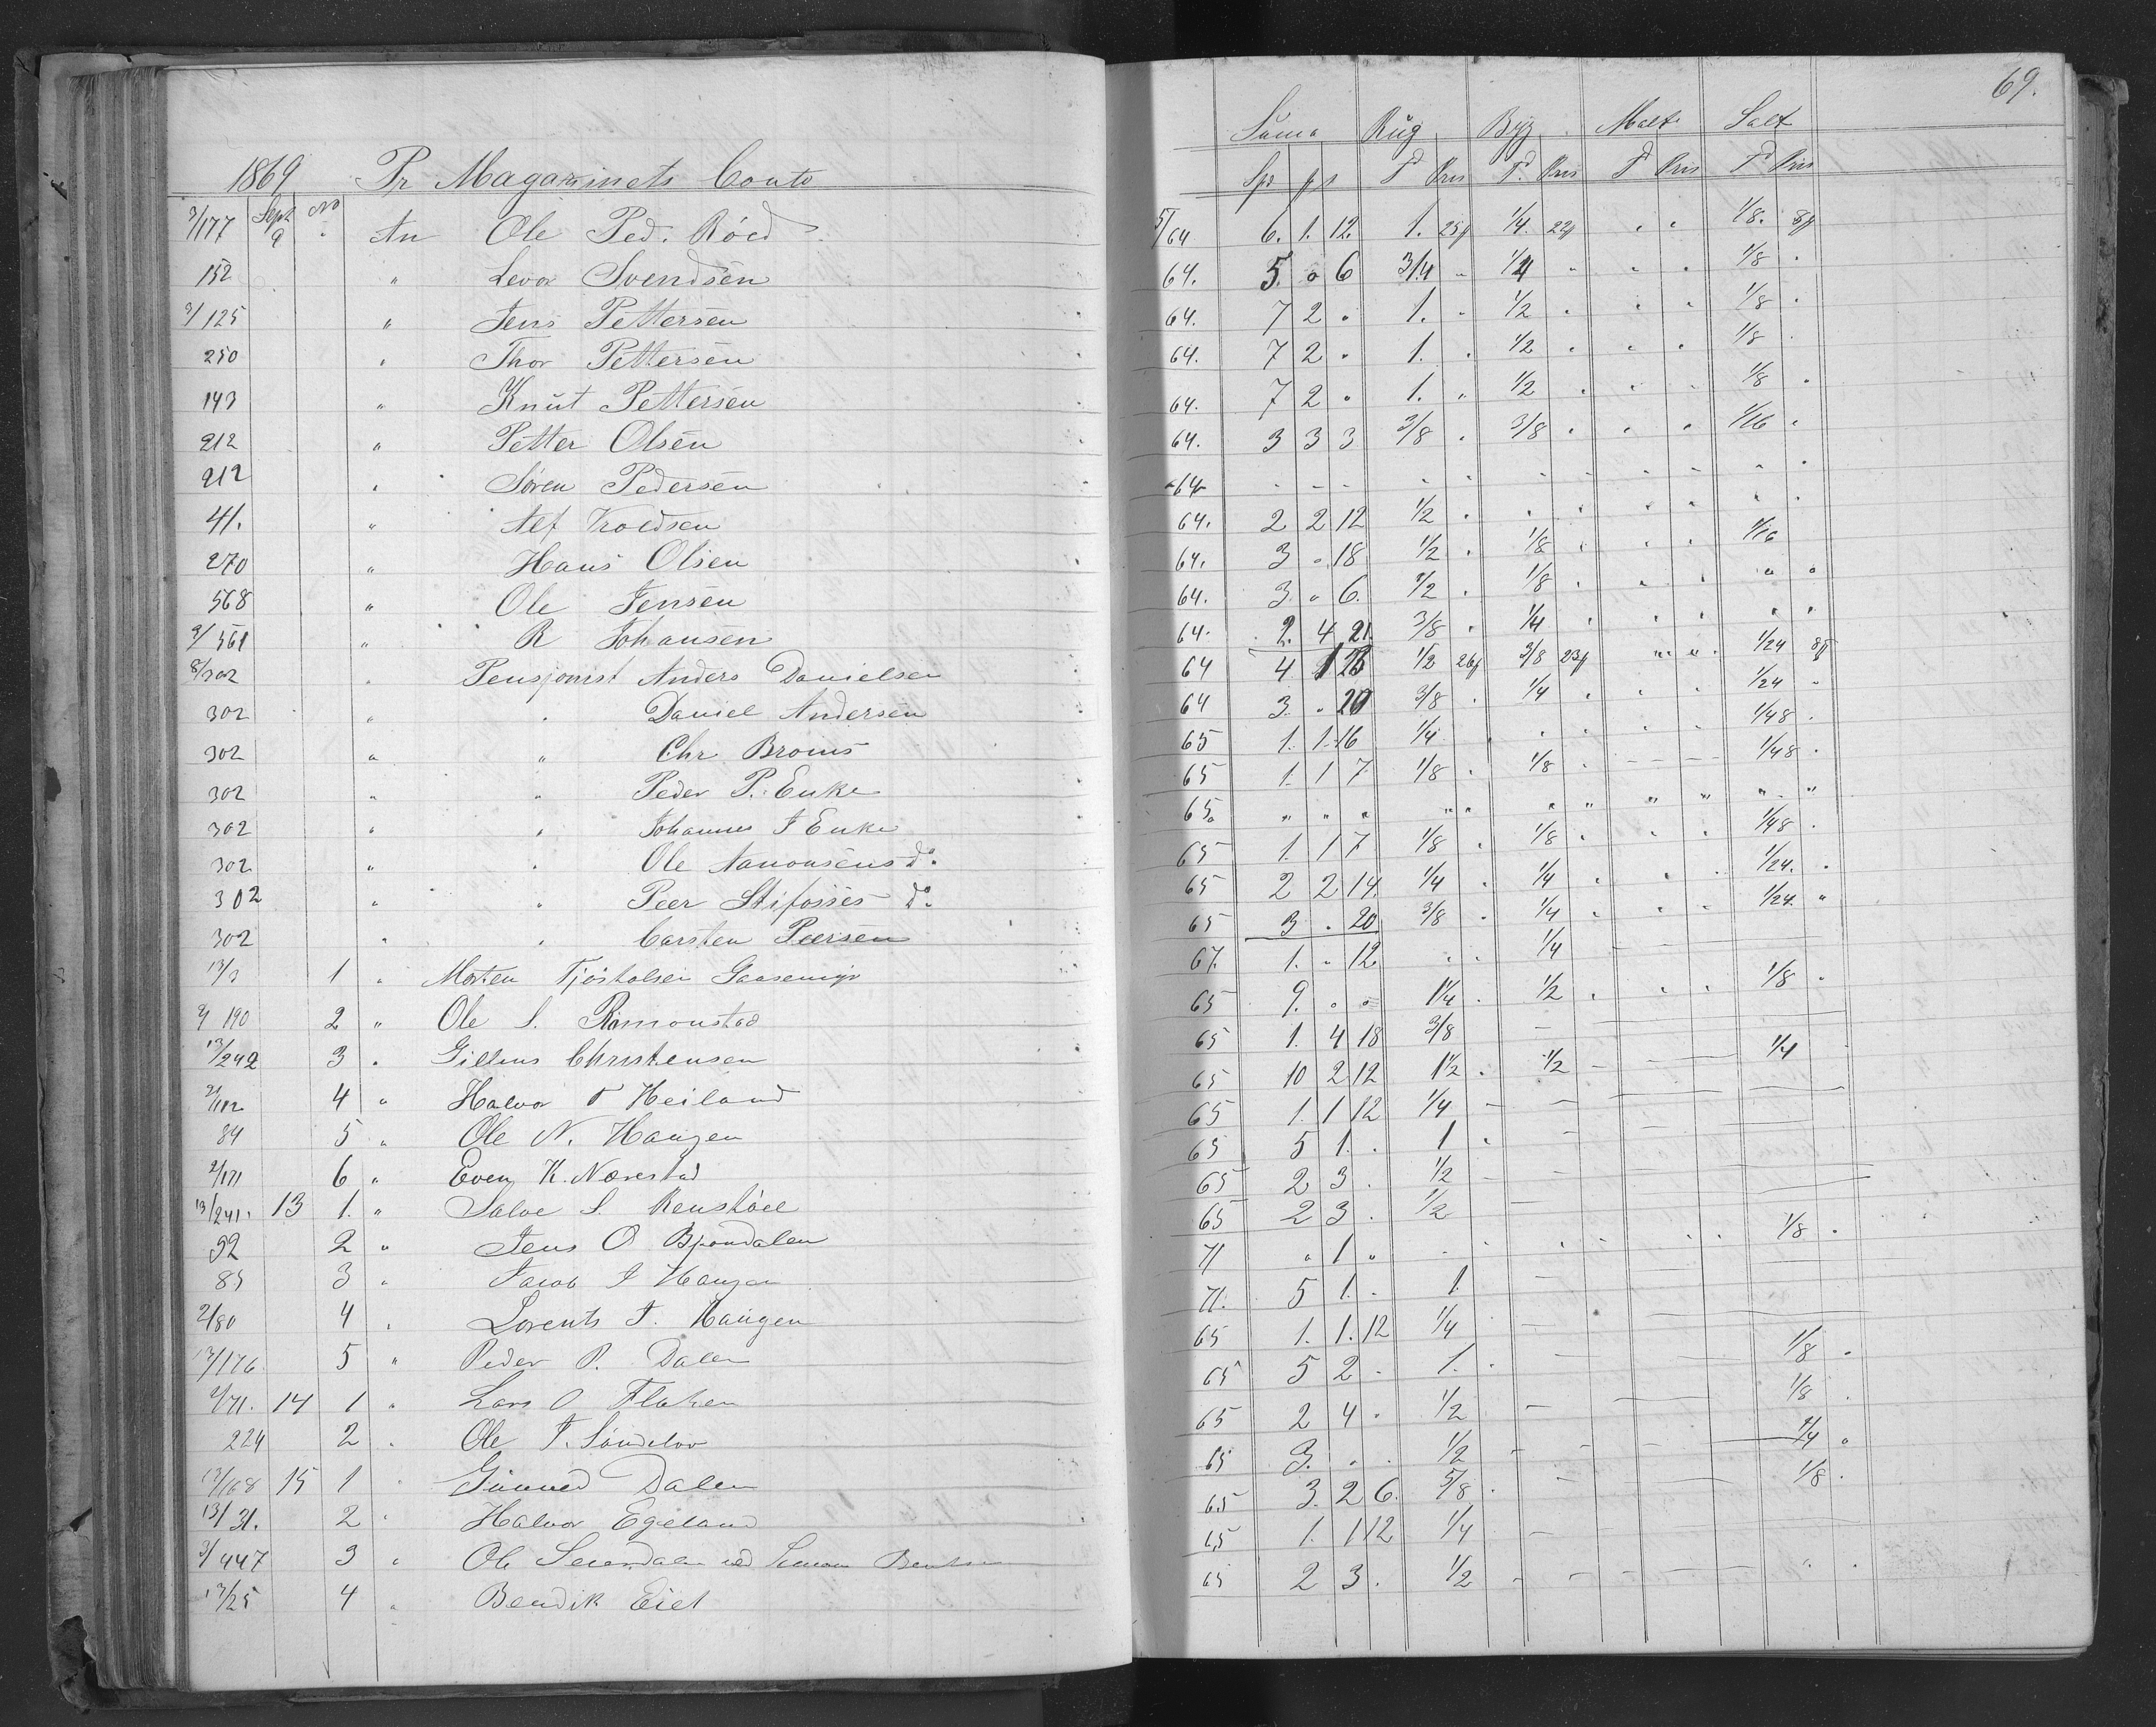 69.
1869 Pr Magazinets Conto
Suma Rüg Byg Malt Salt
Sept No Spd ß s Td Pris Td. Pris Td Pris Td Pris
3/177 9 " An Ole Ped. Röed 5/64 6. 1. 12. 1. 25ß 1/4. 22ß " " 1/8. 8ß
152 " Levor Svendsen 64. 5. " 6 3/4 " 1/4 " " " 1/8 "
3/125 " Jens Pettersen 64. 7 2 " 1. " 1/2 " " " 1/8 "
250 " Thor Pettersen 64. 7 2 " 1. " 1/2 " " " 1/8 "
143 " Knut Pettersen 64. 7 2 " 1. " 1/2 " " " 1/8 "
212 " Petter Olsen 64. 3 3 3 3/8 " 3/8 " " " 1/16 "
212 " Søren Pedersen 64 - - - - - - - - - - -
41. " Alf Troedsen 64. 2 2 12 1/2 " " " " " " "
270 " Hans Olsen 64. 3 " 18 1/2 " 1/8 " " " 1/16
568 " Ole Jensen 64. 3. " 6. 1/2 " 1/8 " " " " "
3/561 " R Johansen 64. 2. 4 21. 3/8 " 1/4 " " " " "
8/302 " Pensjonist Anders Danielsen 64 4 1 23 1/2 26ß 3/8 23ß " " 1/24 8ß
302 " " Daniel Andersen 64 3. " 20 3/8 " 1/4 " " " 1/24 "
302 " " Chr Broms 65 1. 1. 16 1/4 " " " " " 1/48 "
302 " " Peder P. Enke 65 1. 1 7. 1/8 " 1/8 " - - - 1/48 "
302 " " Johannes J Enke 65. " " " " " " " " " " "
302 " " Ole Aanonsens do. 65 1. 1 7 1/8 " 1/8 " " " 1/48 "
302 " " Peer Stifosses do. 65 2 2 14. 1/4 " 1/4 " " " 1/24. "
302 " " Carsten Peersen 65 3 " 20 3/8 " 1/4 " " " 1/24. "
13/3 1 " Morten Tjöstolsen 67. 1. " 12 " " 1/4 -
2/190 2 " Ole S. 65 9. " " 1 1/4 " 1/2 " " " 1/8 "
13/242 3 " Christensen 65 1. 4 18 3/8 -
2/112 4 " Halvor T Heiland 65 10 2 12 1 1/2 " 1/2 - - - 1/4
84 5 " Ole N. Haugen 65 1. 1 12 1/4 - - - -
2/171 6 " Even K. Nærestad 65 5 1. " 1 " - -
13/241. 13 1. " Salve S. 65 2 3 . 1/2 - -
52 2 " Jens O Bjorndalen 65 2 3 . 1/2 -
85 3 " Jacob J Haugen 71 " 1 " " " " " " " 1/8 "
2/80 4 " Lorents J. Haugen 71. 5 1. " 1. - -
13/176 5 " Peder P. Dalen 65 1. 1. 12 1/4 -
2/71. 14 1 " Lars O Flaken 65 5 2 - 1. " - - 1/8 "
224 2 " Ole T. Söndelov 65 2 4 . 1/2 - - 1/8 .
13/168 15 1 " Gunned Dalen 65 3. " . 1/2 - - - 1/4 "
13/31. 2 " Halvor Egeland 65 3. 2 6. 5/8 . - - 1/8 .
3/447 3 " Ole 65 1. 1 12 1/4 - - -
13/25 4 " Bendik Eiet 65 2 3 . 1/2 - - - - " "